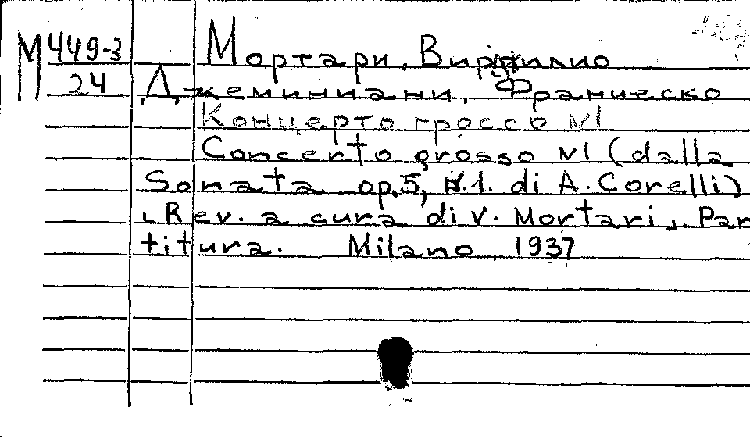 М449-3 Мортари, Вирджилио
24 Джеминиани, Франческо
Концерто гроссо №1
Concerto grosso №1 (dalla
Sonata op.5, N.1. di A. Corelli)
"Rev. a cura di V. Mortari". Par
titura. Milano, 1937